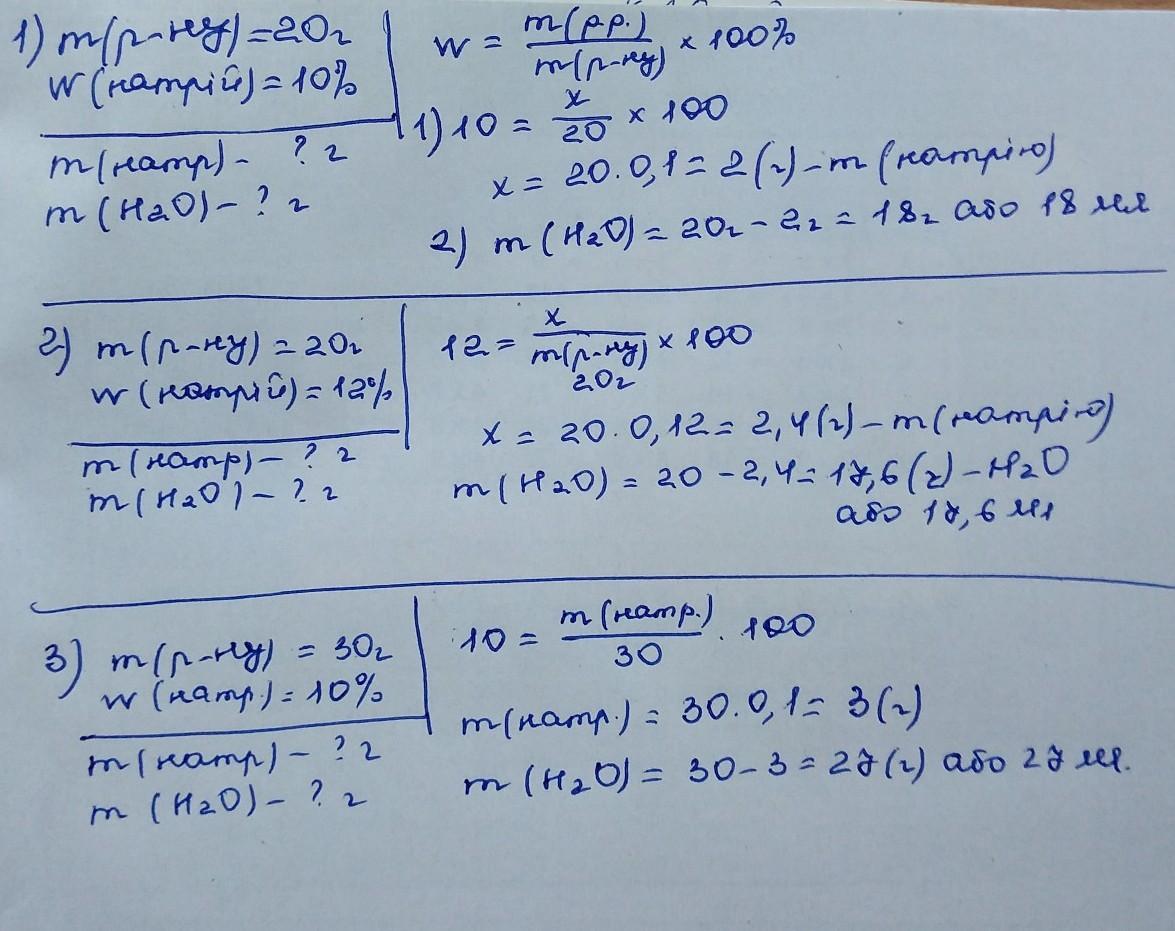 1) m(р-ну)=20г
W(натрій)=10%
m(натр)- ? г
m(H2O)-? г
W = m(р.р.)/m(р-ну) × 100%
1) 10 = x/20 × 100
x = 20·0,1=2(г)-m(натрію)
2) m(H2O)=20г-2г=18г або 18 мл
2) m(р-ну)=20г
W(натрій)=12%
m(натр)-? г
m(H2O)-? г
12= x/m(р-ну) × 100
20г
x = 20·0,12=2,4(г)-m(натрію)
m(H2O)=20-2,4=17,6(г)-H2O
або 17,6 мл
3) m(р-ну) = 30г
W(натр.)=10%
m(натр)-? г
m(H2O)-? г
10= m(натр.)/30 · 100
m(натр.)=30·0,1=3(г)
m(H2O)=30-3=27(г) або 27 мл.